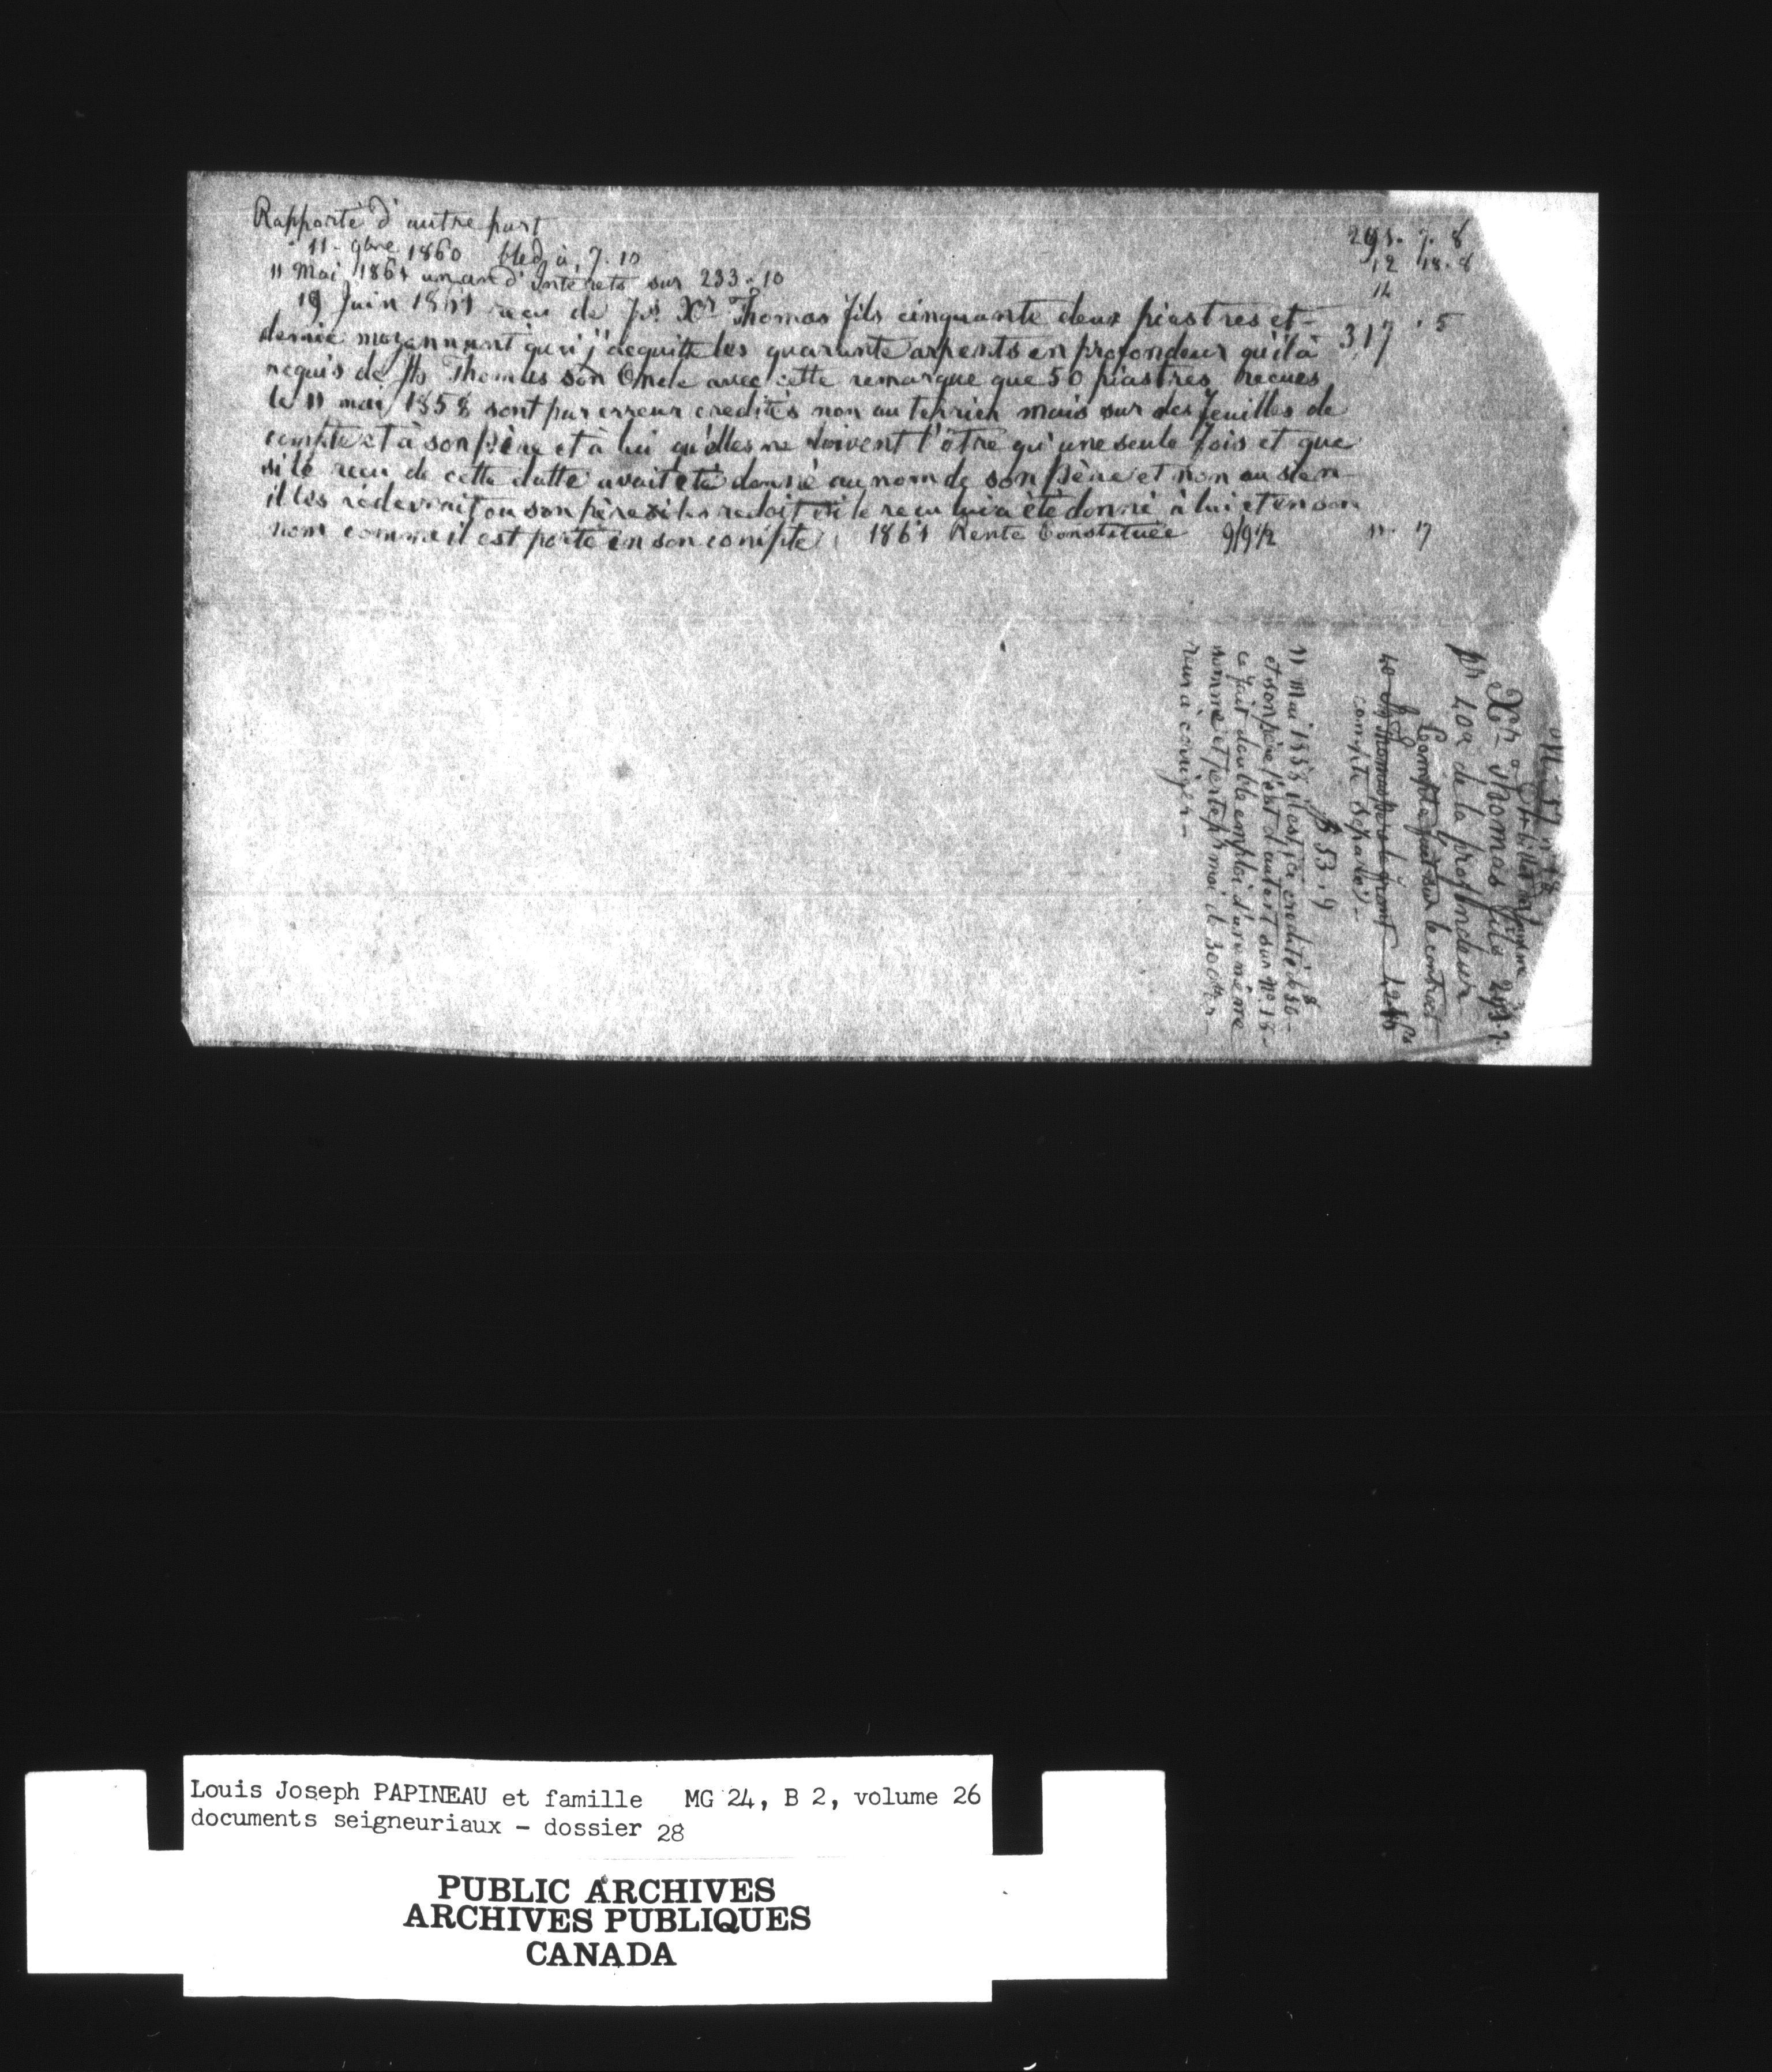 Rapporté d'autre part 291. 7. 8
11. 9bre 1860 bled à 7.10 12 18. 8
11 Mai 1861 un an d'Intérets sur 233.10 14
19 Juin 1861 recu de Fs. Xr Thomas fils cinquante deux piastres et 317 . 5
demie moyennant quoi j'acquitte les quarante arpents en profondeur qu'il à
acquis de Jh Thomas son Oncle avec cette remarque que 50 piastres recues
le 11 mai 1858 sont par erreur credités non au terrier mais sur des feuilles de
compte et à son père et à lui qu'elles ne doivent l'être qu'une seule fois et que
si le recu de cette datte avait été donné au nom de son père et non au sien
il les redevrait ou son père si le recu lui a été donné à lui et en son
nom comme il est porté en son compte. 1861 Rente Constituée 9/9 1/2 11. 17
Xr Thomas fils
pr 40a de la profondeur
Compte fait sur le contrat
compte séparé
$ 53. 9
11 Mai 1858 il est ici credité $ 50
et son père l'est d'autant sur No. 18
ce fait double emploi d'une même
somme et perte pr moi de 300
reur à corriger
Louis Joseph PAPINEAU et famille MG 24, B 2, volume 26
documents seigneuriaux - dossier 28
PUBLIC ARCHIVES
ARCHIVES PUBLIQUES
CANADA